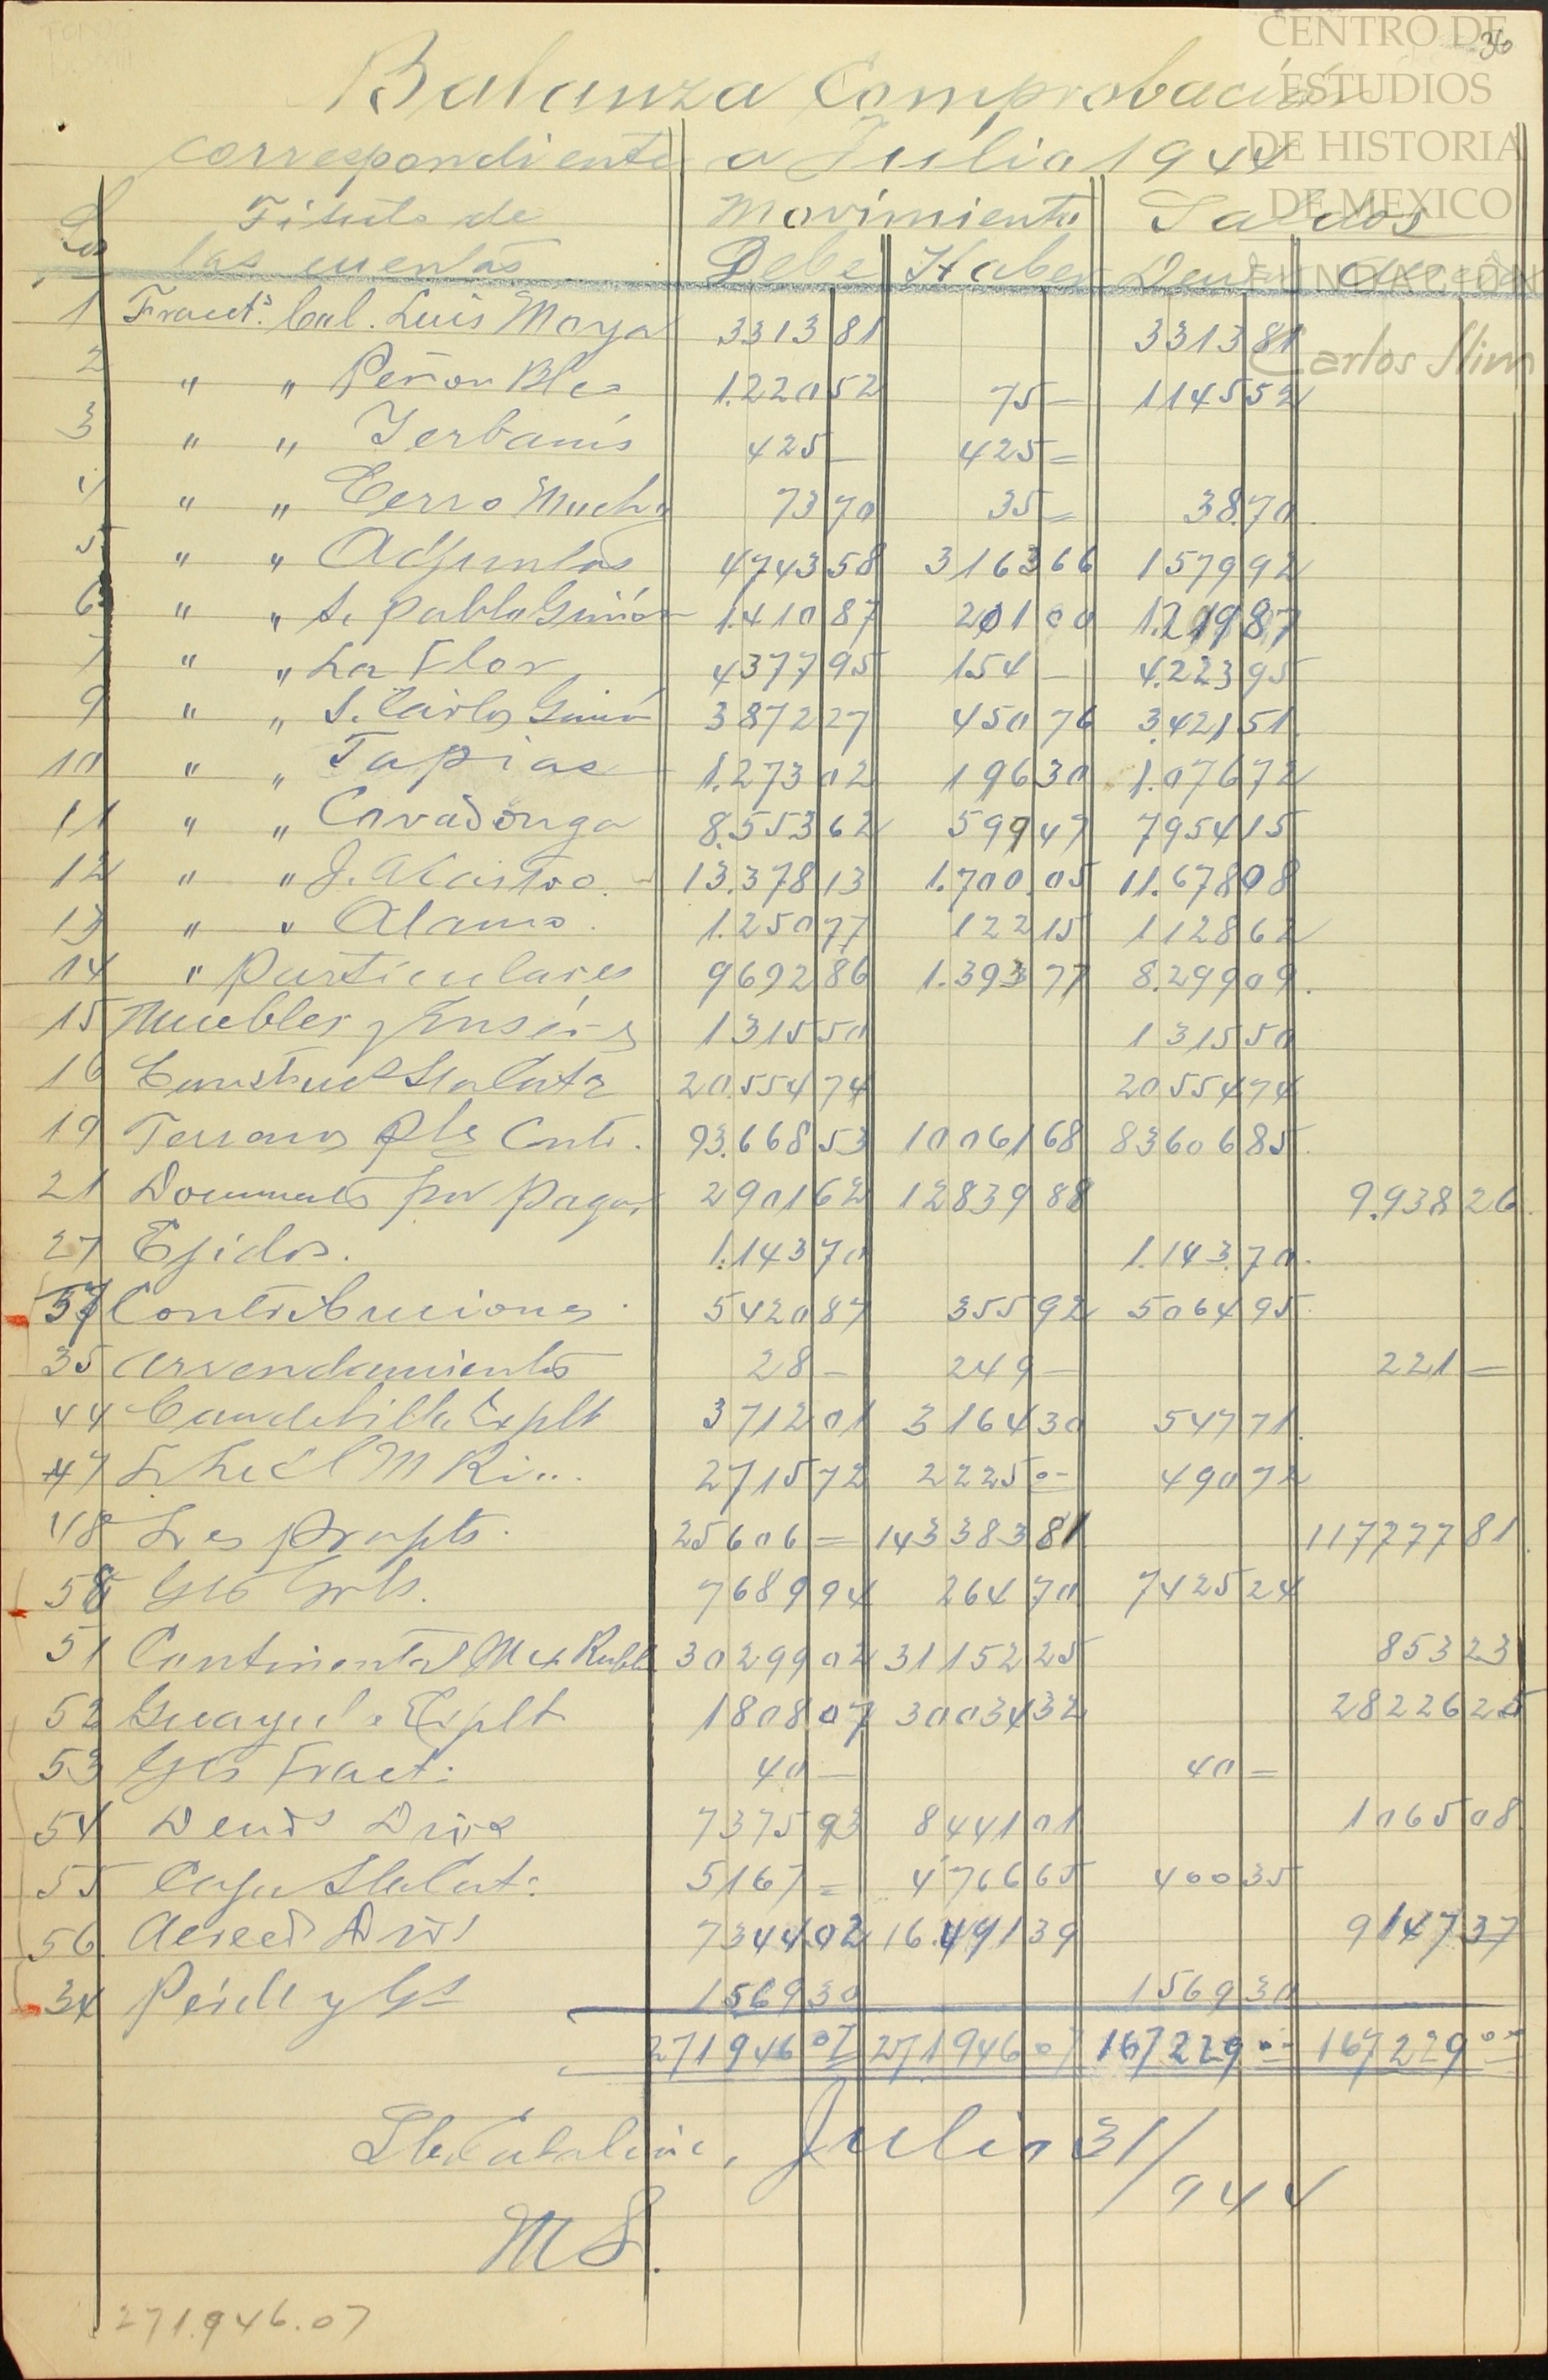 36
CENTRO DE
ESTUDIOS
DE HISTORIA
DE MEXICO
FUNDACIÓN
Carlos Slim
Balanza Comprobación
correspondiente a Julio 1944
Título de Movimiento Saldos
las cuentas Debe Haber Deudor Acreedor
1 Fracts. Cal. Luis Moya 3313 81 3313 81
2 " " Peñon Blco 1.220 52 75 — 1145 52
3 " " Yerbanís 425 — 425 =
4 " " Cerro Mocho 73 70 35 = 38.70
5 " " Adjuntas 4743 58 3163 66 1579 92
6 " " S. Pablo 1.410 87 201 00 1.219 87
7 " " La Flor 4377 95 154 — 4.223 95
9 " " S. Carlos 3872 27 450 76 3.421 51
10 " " Tapias 1.273 02 196 30 1.076 72
11 " " Covadonga 8.553 62 599 47 7954 15
12 " " J. A Castro 13.378 13 1.700.05 11.678 08
13 " " Alamo 1.250 77 122 15 1128 62
14 " Particulares 9692 86 1.393 77 8.299 09
15 Muebles y Enseres 1315 50 1315 50
16 Construc Sta Cata 20.554 74 20554 74
19 Terrenos Conti. 93.668 53 10061 68 83606 85
21 Documents por Pagar 2901 62 12839 88 9.938 26
27 Ejidos. 1.143 70 1.143.70
37 Contribuciones 5420 87 355 92 5064 95
35 Arrendamientos 28 — 249 — 221 =
44 Candelilla Explt 3712 01 3164 30 547 71
47 2715 72 2225 00 490 72
48 25606 = 143383 81 117777 81
50 Gts Grls. 7689 94 264 70 7425 24
51 Continental Mex Rubb 30299 02 31152 25 853 23
52 Guayule Explt 1808.07 30034 32 28226 25
53 Gts Fract. 40 — 40 =
54 Deuds Divs 7375 93 8441 01 1065 08
55 Caja Sta Cat. 5167 = 4766 65 400 35
56 Acreeds Divs 7344.02 16.491 39 9147 37
34 Pérd y Gs 1569 30 1569 30
271946 07 271946 07 167229 00 167229 00
Sta Catalina, Julio 31/
944
MS.
271.946.07